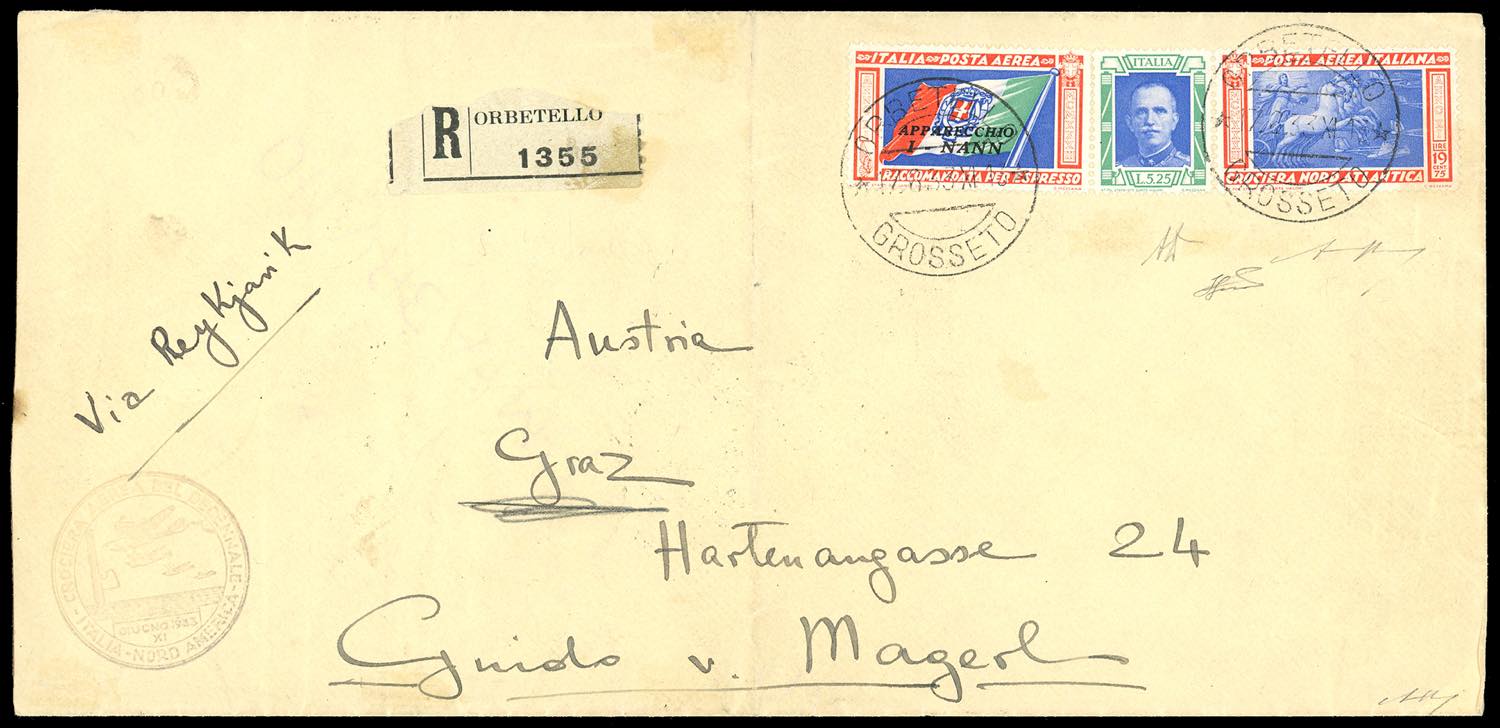 R ORBETELLO
1355
ITALIA POSTA AEREA
APPARECCHIO
I-NANN
RACCOMANDATA PER ESPRESSO
ITALIA
L.5,25
POSTA AEREA ITALIANA
LIRE 19
CENT. 75
ORBETELLO
GROSSETO
ORBETELLO
GROSSETO
Via Reykjavik
Austria
Graz
Hartenaugasse 24
Guido v. Magerl
CROCIERA AEREA DEL DECENNALE
GIUGNO 1933
XI
- ITALIA - NORD AMERICA -